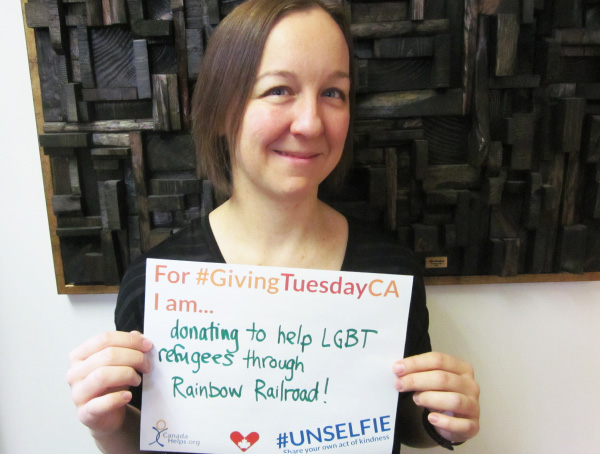 For #GivingTuesdayCA
I am...
donating to help LGBT
refugees through
Rainbow Railroad!
Canada
Helps.org
#UNSELFIE
Share your own act of kindness